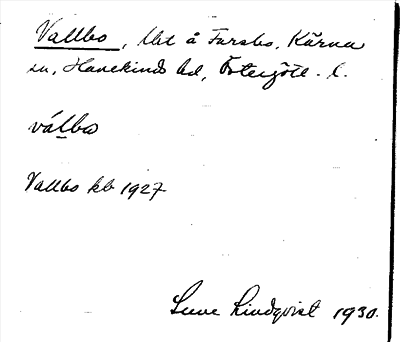 Vallbo, lht å Farsbo, Kärna
sn, Hanekinds hd, Östergötl. l.
válba
Vallbo kb 1927
Sune Lindqvist 1930.